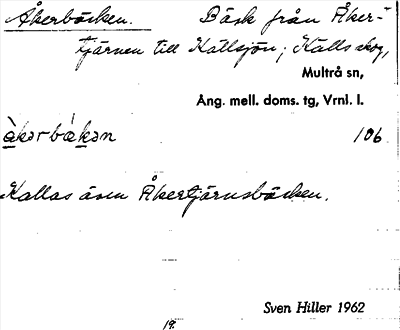 Åkerbäcken. Bäck från Åker-
tjärnen till Källsjön; Källs skog,
Multrå sn,
Ång. mell. doms. tg, Vrnl. l.
àkərbàkən 106
Kallas även Åkertjärnsbäcken.
Sven Hiller 1962
19.